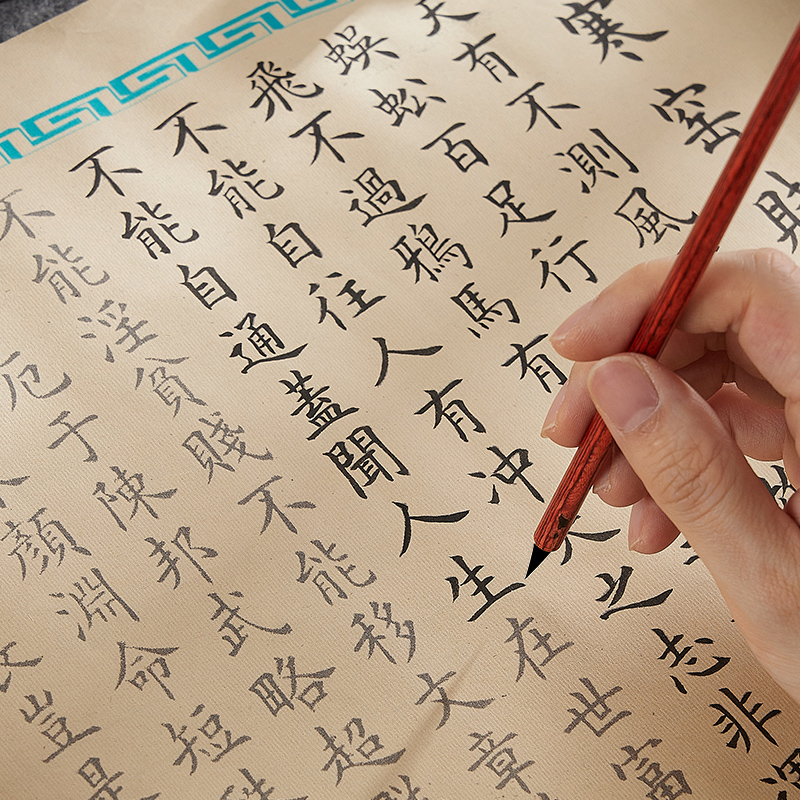 寒窑
天有不測風
蜈蚣百足行
飛不過鴉馬有
不能自往人有冲天之志非
不能自通蓋聞人生在世富
不能淫貧賤不能移文章
厄于陳邦武略超
顏淵命短
豈是